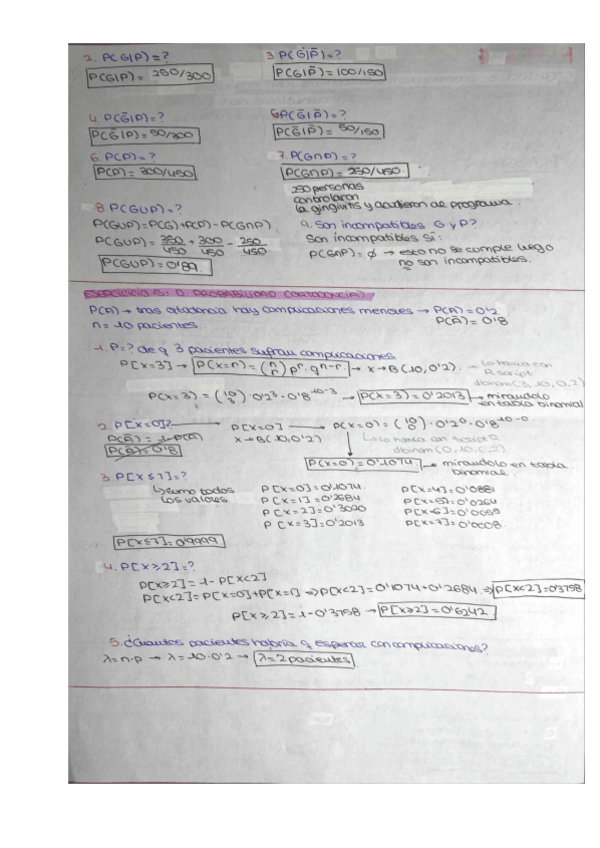 2. P(G|P)=?
P(G|P) = 250/300
3 P(G|P̄)=?
P(G|P̄) = 100/150
4. P(Ḡ|P)=?
P(Ḡ|P) = 50/300
P(Ḡ|P̄)=?
P(Ḡ|P̄) = 50/150
6. P(P)=?
P(P) = 300/450
7. P(G∩P)=?
P(G∩P) = 250/450
250 personas
controlaron
la gingivitis y acudieron de programa.
8. P(G∪P)=?
P(G∪P)= P(G)+P(P)-P(G∩P)
P(G∪P)= 350/450 + 300/450 - 250/450
P(G∪P)= 0'89
9. Son incompatibles G y P?
Son incompatibles si:
P(G∩P)= ∅ → esto no se cumple luego
no son incompatibles.
EJERCICIO 5: D PROBABILIDAD (ORTODONCIA)
P(A) → tras hay complicaciones menores → P(A)=0'2
P(Ā)=0'8
n=10 pacientes
1. P=? de q 3 pacientes sufran complicaciones
P[X=3] → P(X=n) = (n n) pⁿ · qⁿ⁻ⁿ → X→B(10,0'2).
Lo haría con
R script
dbinom(3,10,0,2)
P(X=3) = (10 3) · 0'2³ · 0'8¹⁰⁻³ → P(X=3)=0'2013 → mirándolo
en tabla binomial
2. P[X=0]? → P[X=0] → P(X=0) = (10 0) · 0'2⁰ · 0'8¹⁰⁻⁰
P(Ā) = 1-P(A)
X→B(10,0'2)
P(Ā)=0'8
Lo haría con script
dbinom(0,10,0,2)
P(X=0)=0'1074 → mirándolo en tabla
binomial.
3. P[X≤7]=?
↳ sumo todos
los valores
P[X=0]=0'1074.
P[X=1]=0'2684
P[X=2]=0'3020
P[X=3]=0'2013
P[X=4]=0'0881
P[X=5]=0'0264
P[X=6]=0'0055
P[X=7]=0'0008
P[X≤7]=0'9999
4. P[X≥2]=?
P[X≥2]=1-P[X<2]
P[X<2]=P[X=0]+P[X=1] ⇒ P[X<2]=0'1074+0'2684 ⇒ P[X<2]=0'3758
P[X≥2]=1-0'3758 → P[X≥2]=0'6242
5. ¿Cuántos pacientes habría q esperar con complicaciones?
λ=n·p → λ=10·0'2 → λ=2 pacientes